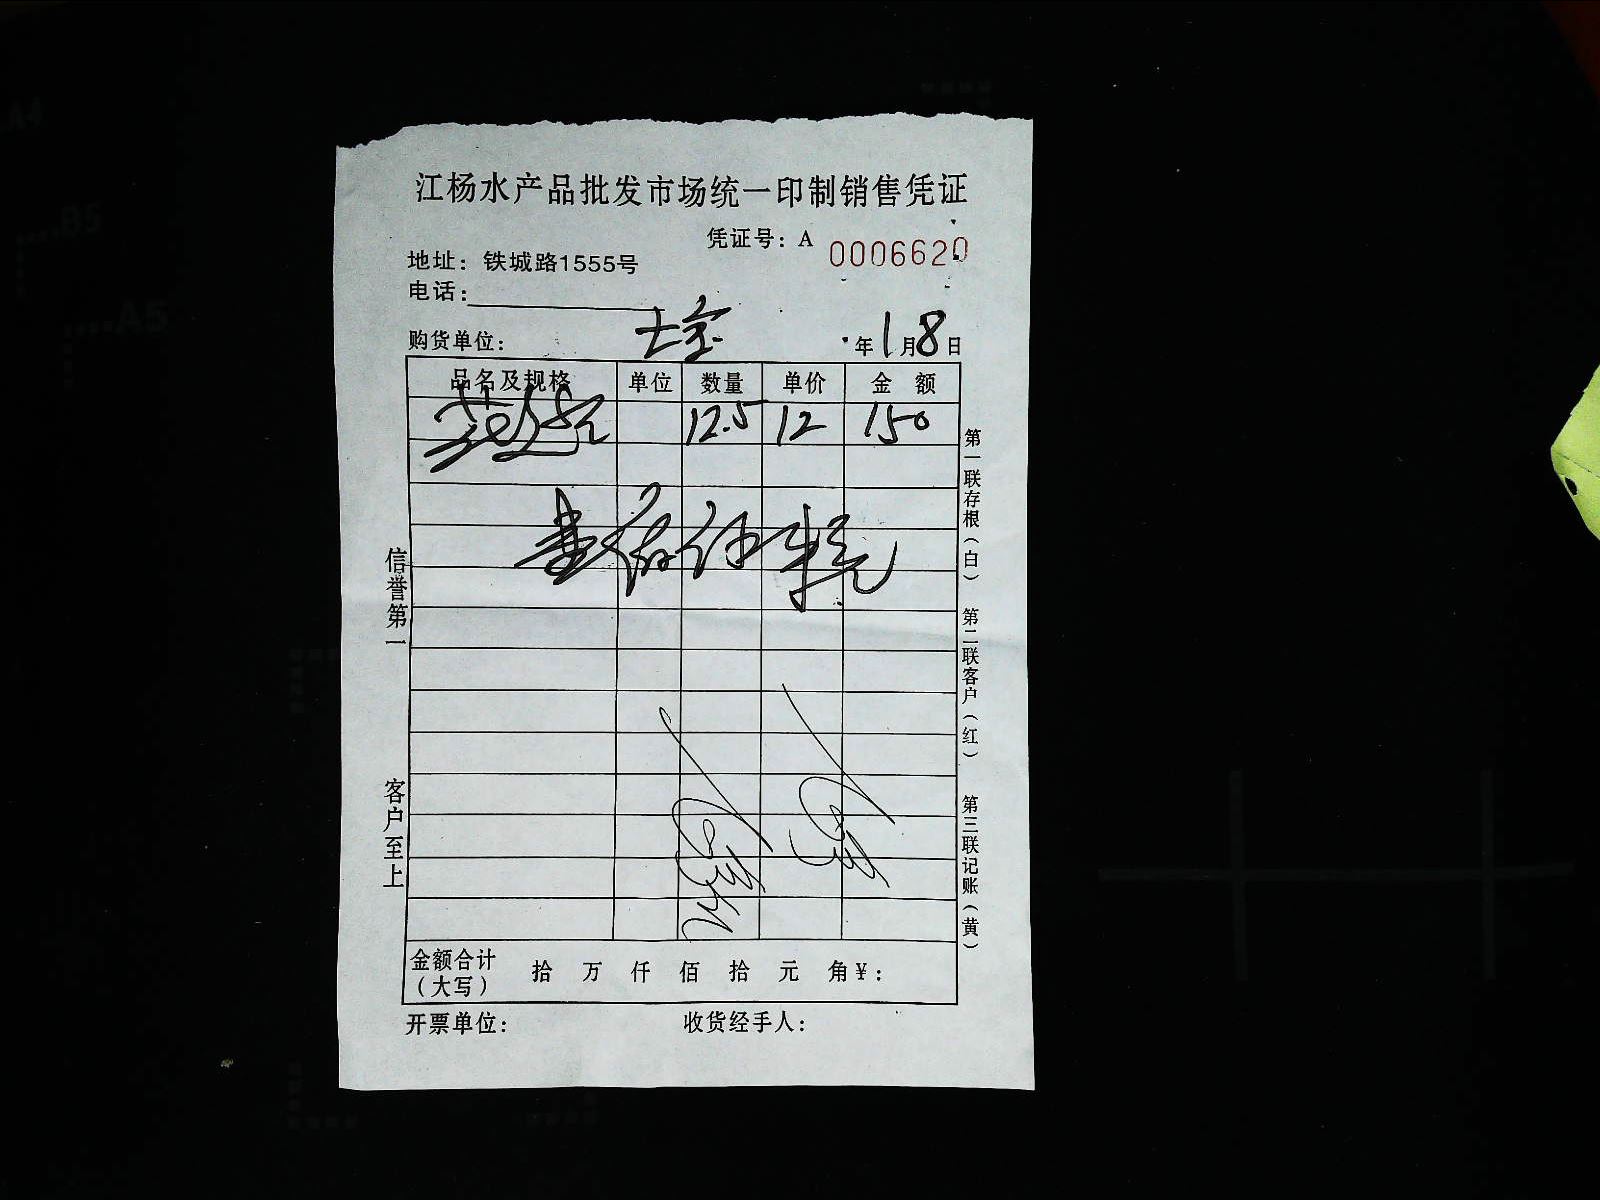 江杨水产品批发市场统一印制销售凭证
凭证号：A 0006620
地址：铁城路1555号
电话：
购货单位： 七宝 年1月8日
品名及规格 单位 数量 单价 金 额
12.5 12 150
信誉第一
客户至上
第一联存根（白） 第二联客户（红） 第三联记账（黄）
金额合计（大写） 拾 万 仟 佰 拾 元 角¥：
开票单位： 收货经手人：